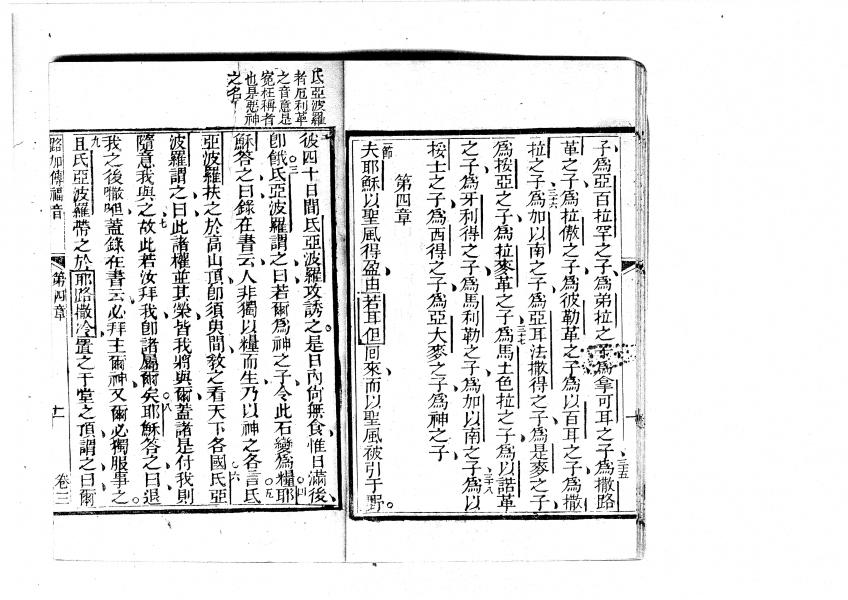 子爲亞百拉罕之子爲弟拉之子爲拿可耳之子爲撒路
三五
革之子爲拉傲之子爲彼勒革之子爲以百耳之子爲撒
拉之子爲加以南之子爲亞耳法撒得之子爲是麥之子
三六
爲挼亞之子爲拉麥革之子爲馬土色拉之子爲以諾革
三七
之子爲牙利得之子爲馬利勒之子爲加以南之子爲以
三八
挼士之子爲西得之子爲亞大麥之子爲神之子
第四章
一節
夫耶穌以聖風得盈由若耳但囘來而以聖風被引于野
氐亞波羅
者厄利革
之音意是
寃枉稱者
也是惡神
之名
彼四十日間氐亞波羅攻誘之是日內何無食惟日滿後
卽餓氐亞波羅謂之曰若爾爲神之子令此石變爲糧耶
穌答之曰錄在書云人非獨以糧而生乃以神之各言氐
亞波羅扶之於高山頂卽須臾間敎之看天下各國氐亞
波羅謂之曰此諸權並其榮皆我將與爾蓋諸是付我則
隨意我與之故此若汝拜我卽諸屬爾矣耶穌答之曰退
我之後嗽呾蓋錄在書云必拜主爾神又爾必獨服事之
且氐亞波羅帶之於耶路撒冷置之于堂之頂謂之曰爾
路加傳福音
第四章
十一
卷三